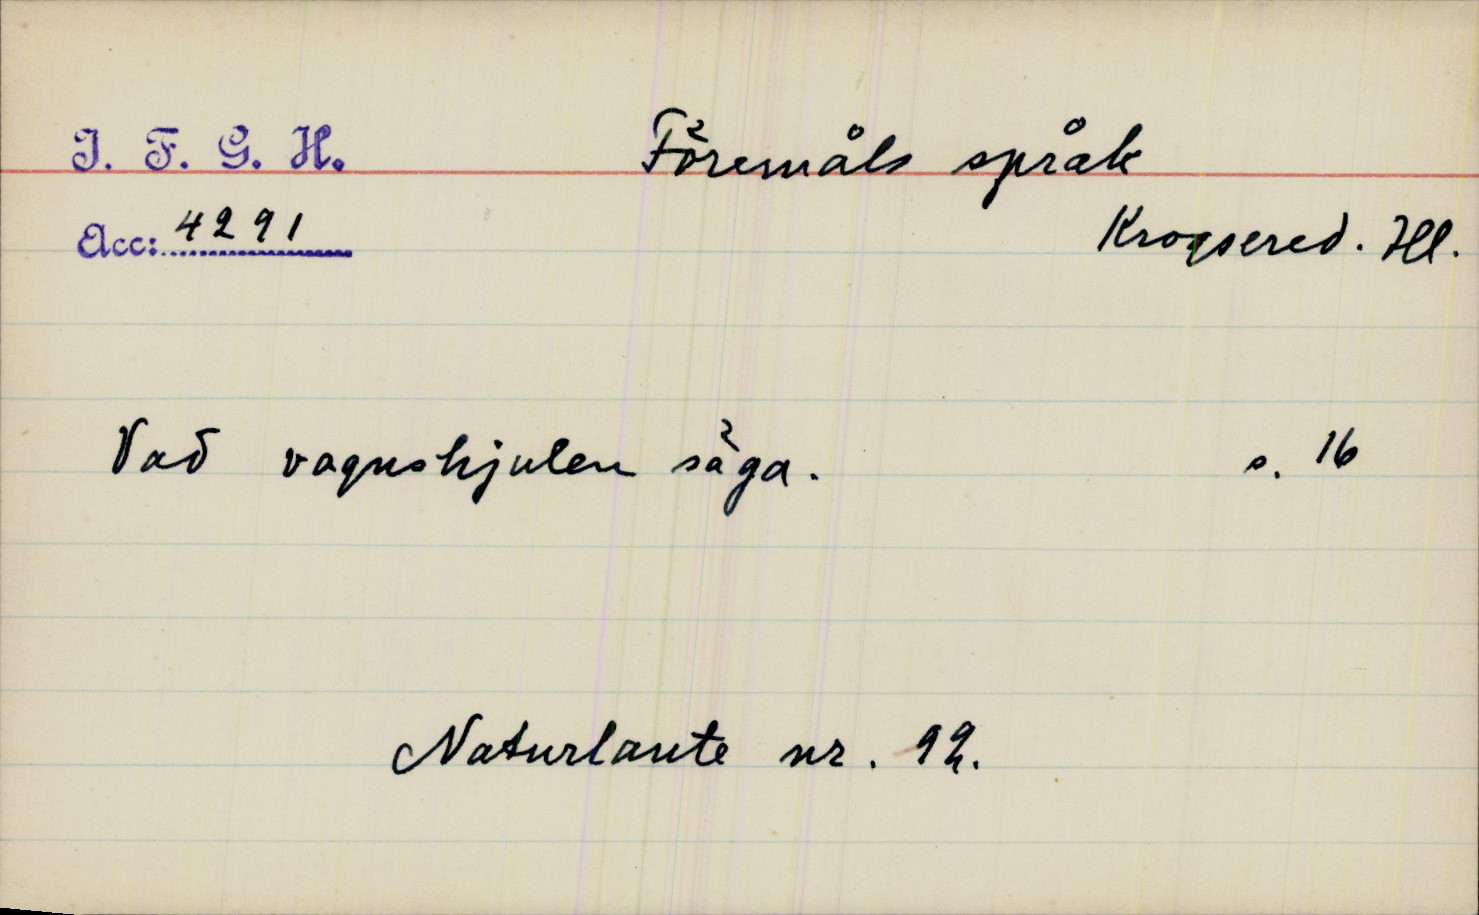 I. F. G. H.
Föremåls språk
Acc: 4291
Krogsered. Hl.
Vad vagnshjulen säga. s. 16
Naturlaute nr. 92.